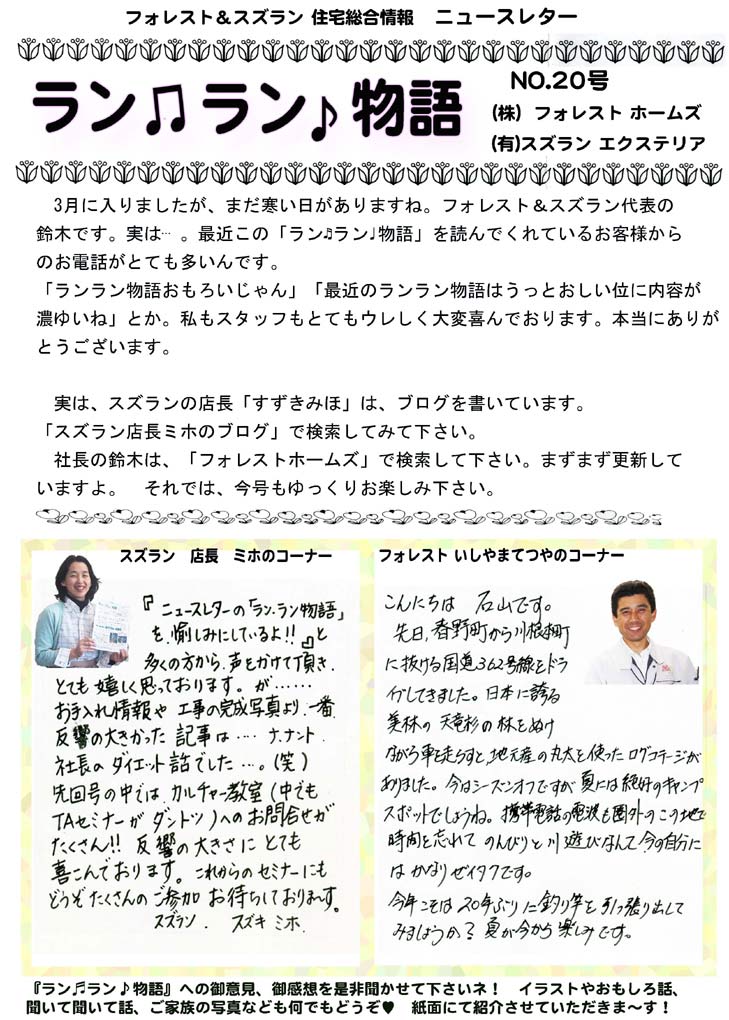 フォレスト＆スズラン 住宅総合情報　ニュースレター
ラン♫ラン♪物語
NO.20号
(株) フォレスト ホームズ
(有)スズラン エクステリア
3月に入りましたが、まだ寒い日がありますね。フォレスト＆スズラン代表の
鈴木です。実は… 。最近この「ラン♫ラン♩物語」を読んでくれているお客様から
のお電話がとても多いんです。
「ランラン物語おもろいじゃん」「最近のランラン物語はうっとおしい位に内容が
濃ゆいね」とか。私もスタッフもとてもウレしく大変喜んでおります。本当にありが
とうございます。
実は、スズランの店長「すずきみほ」は、ブログを書いています。
「スズラン店長ミホのブログ」で検索してみて下さい。
社長の鈴木は、「フォレストホームズ」で検索して下さい。まずまず更新して
いますよ。　それでは、今号もゆっくりお楽しみ下さい。
スズラン　店長　ミホのコーナー
『ニュースレターの「ラン、ラン物語」
を、愉しみにしているよ!!』と
多くの方から、声をかけて頂き、
とても嬉しく思っております。が……
お手入れ情報や工事の完成写真より、一番
反響の大きかった記事は…ナ,ナント
社長のダイエット話でした…。(笑)
先回号の中では、カルチャー教室(中でも
TAセミナーがダントツ)へのお問合せが
たくさん!! 反響の大きさにとても
喜こんでおります。これからのセミナーにも
どうぞたくさんのご参加お待ちしておりま〜す。
スズラン. スズキ ミホ.
フォレスト いしやまてつやのコーナー
こんにちは 石山です。
先日、春野町から川根本町
に抜ける国道362号線をドラ
イブしてきました。日本に誇る
美林の天竜杉の林をぬけ
ながら車を走らすと、地元産の丸太を使ったログコテージが
ありました。今はシーズンオフですが夏には絶好のキャンプ
スポットでしょうね。携帯電話の電波も圏外のこの地で
時間を忘れてのんびりと川遊びなんて今の自分に
はかなりゼイタクです。
今年こそは20年ぶりに釣り竿を引っ張り出して
みましょうか？夏が今から楽しみです。
『ラン♫ラン♪物語』への御意見、御感想を是非聞かせて下さいネ！　イラストやおもしろ話、
聞いて聞いて話、ご家族の写真なども何でもどうぞ♥　紙面にて紹介させていただきま〜す！